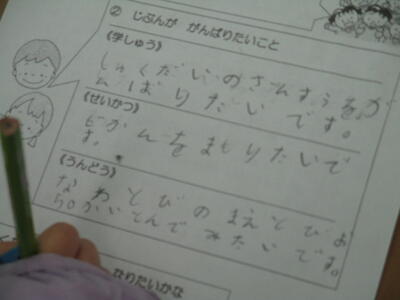 ② じぶんが がんばりたいこと
《学しゅう》
しゅくだいのさんすうをが
んばりたいです。
《せいかつ》
じかんをまもりたいで
す。
《うんどう》
なわとびのまえとびお
50かいとんでみたいです。
なりたいかな